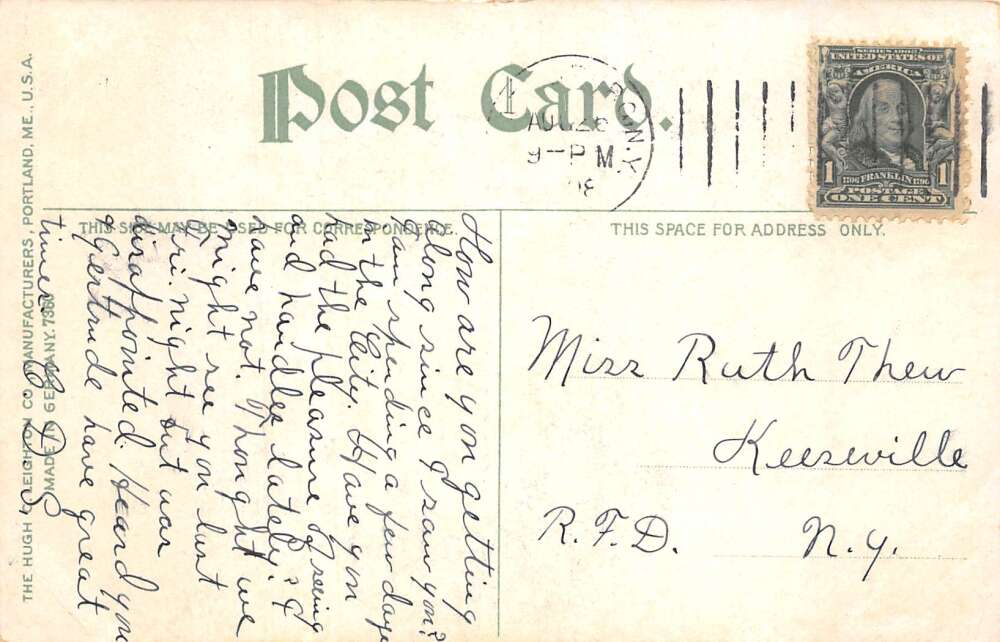 Post Card.
1
AUG 26
9-PM
08
RON.Y.
SERIES 1902
UNITED STATES OF
AMERICA
1 1706 FRANKLIN 1790 1
POSTAGE
ONE CENT
THIS SIDE MAY BE USED FOR CORRESPONDENCE.
THIS SPACE FOR ADDRESS ONLY.
THE HUGH C. LEIGHTON CO., MANUFACTURERS, PORTLAND, ME., U.S.A.
MADE IN GERMANY.
How are you getting
along since I saw you?
I am spending a few days
in the City. Have you
had the pleasure of seeing
and handles lately? I
have not. Thought we
might see you last
Fri. night but was
disapointed. Heard you
& Gertrude have great
times. C. D. S.
Miss Ruth Thew
Keeseville
R.F.D. N.Y.